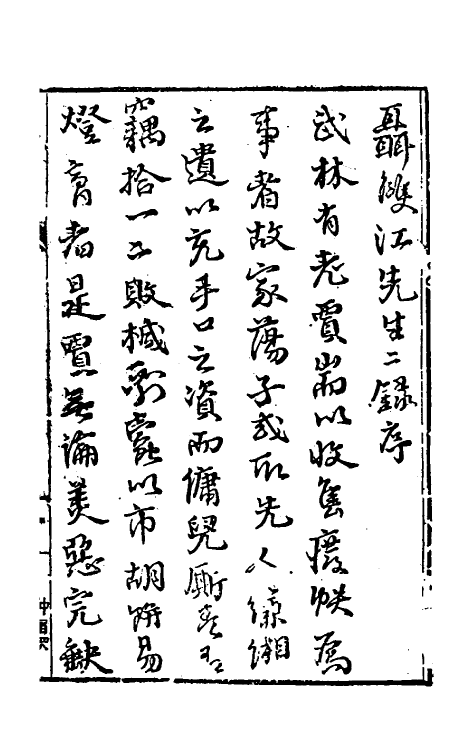 聶雙江先生二錄序
武林有老賈耑以收舊廢帙為
事者故家蕩子或取先人縹緗
之遺以充手口之資而傭兒廝養
竊拾一二敗楲剩竄以市胡餅易
燈膏者是賈無論美惡完缺